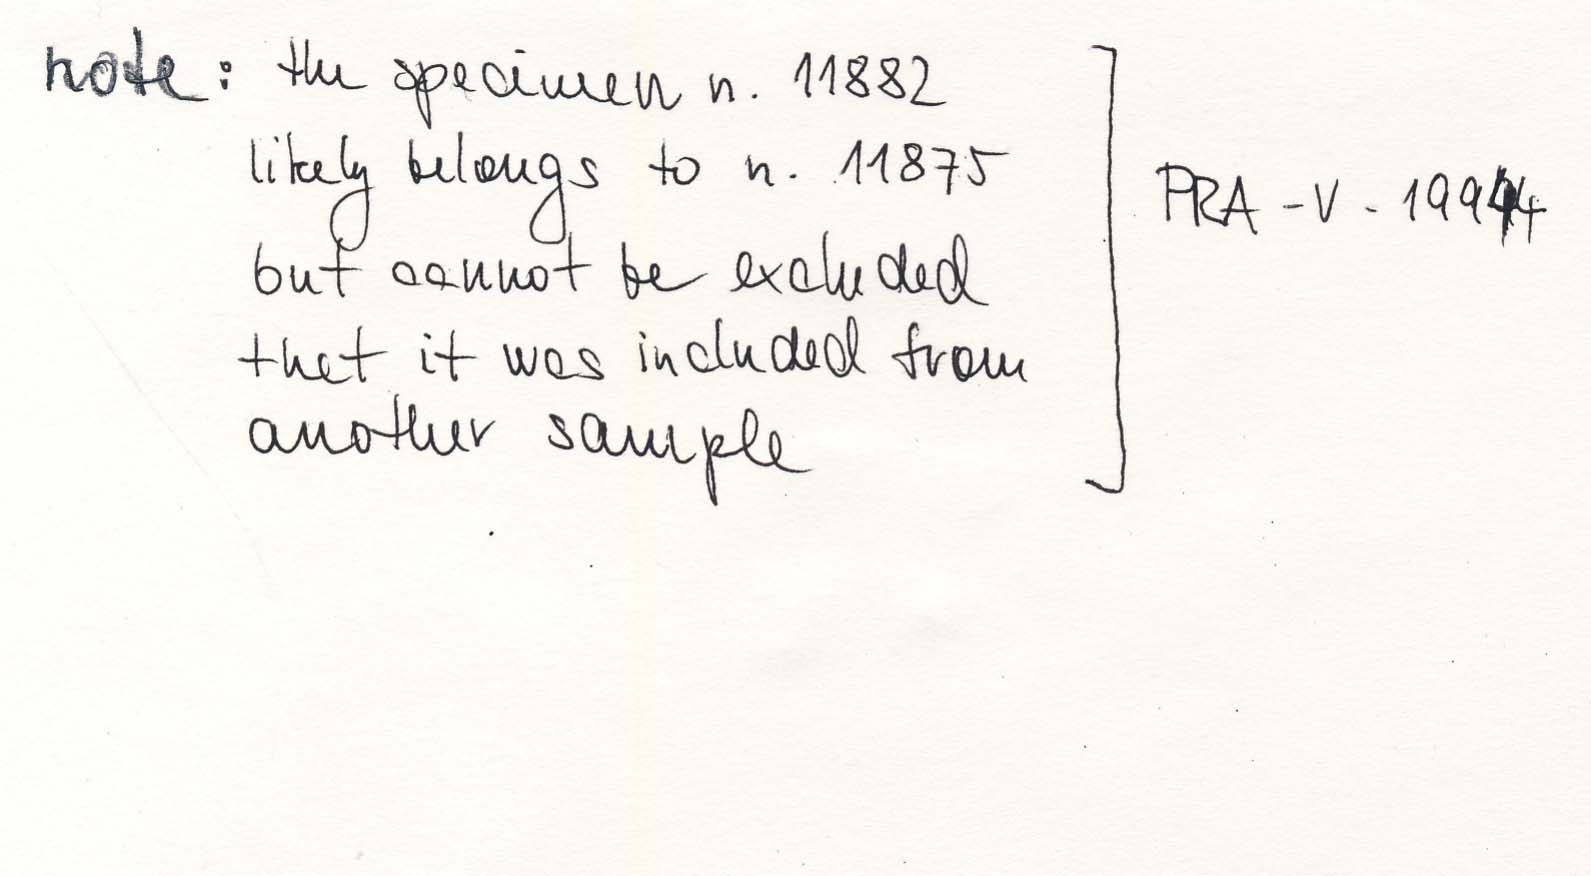 note: the specimen n. 11882
likely belongs to n. 11875
but cannot be excluded
thet it was included from
another sample
PRA - V -